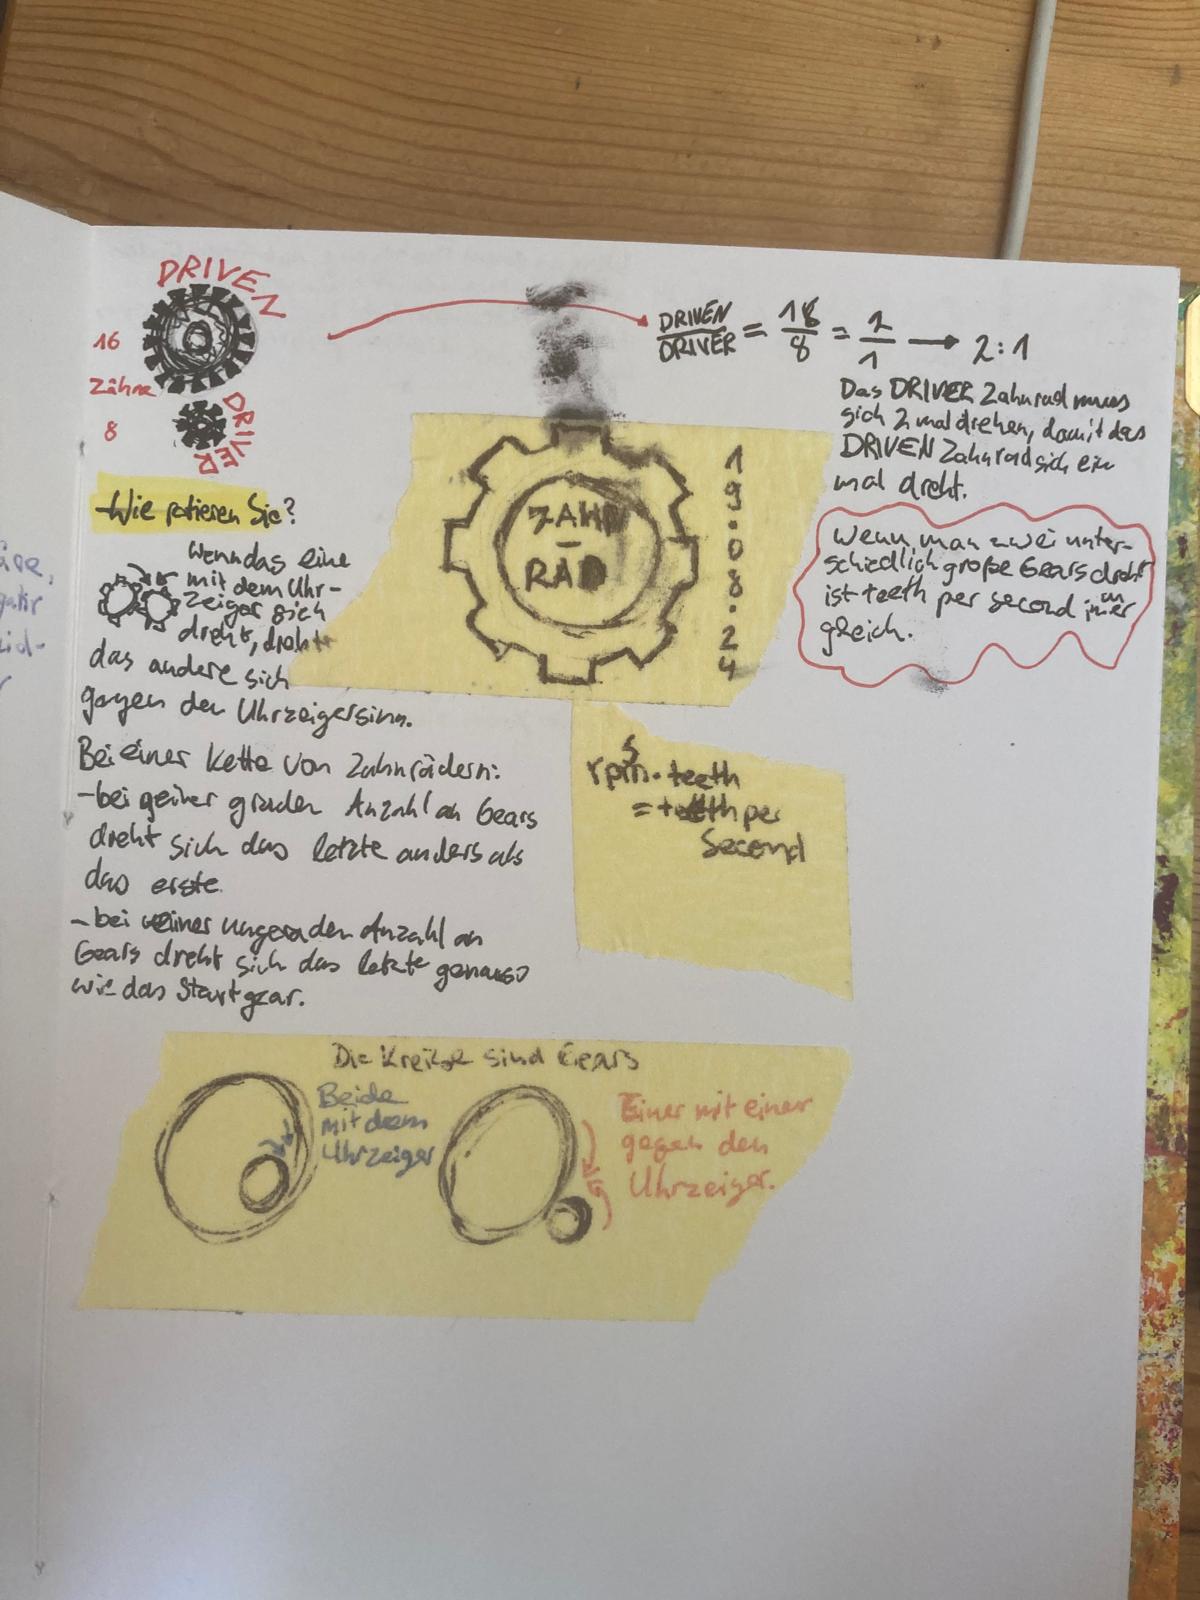 DRIVEN
16
Zähne
8
DRIVER
DRIVEN
DRIVER
= 18
8
= 2
1
→ 2:1
Das DRIVER Zahnrad muss
sich 2 mal drehen, damit das
DRIVEN Zahnrad sich ein
mal dreht.
Wenn man zwei unter-
schiedlich große Gears dreht
ist teeth per second immer
gleich.
ZAHN
-
RAD
19.08.24
Wie rotieren Sie?
Wenn das eine
mit dem Uhr-
zeiger sich
dreht, dreht
das andere sich
gegen den Uhrzeigersinn.
Bei einer Kette von Zahnrädern:
- bei einer graden Anzahl an Gears
dreht sich das letzte anders als
das erste.
- bei einer ungeraden Anzahl an
Gears dreht sich das letzte genauso
wie das Startgear.
rps · teeth
= teeth per
Second
Die Kreise sind Gears
Beide
mit dem
Uhrzeiger
Einer mit einer
gegen den
Uhrzeiger.